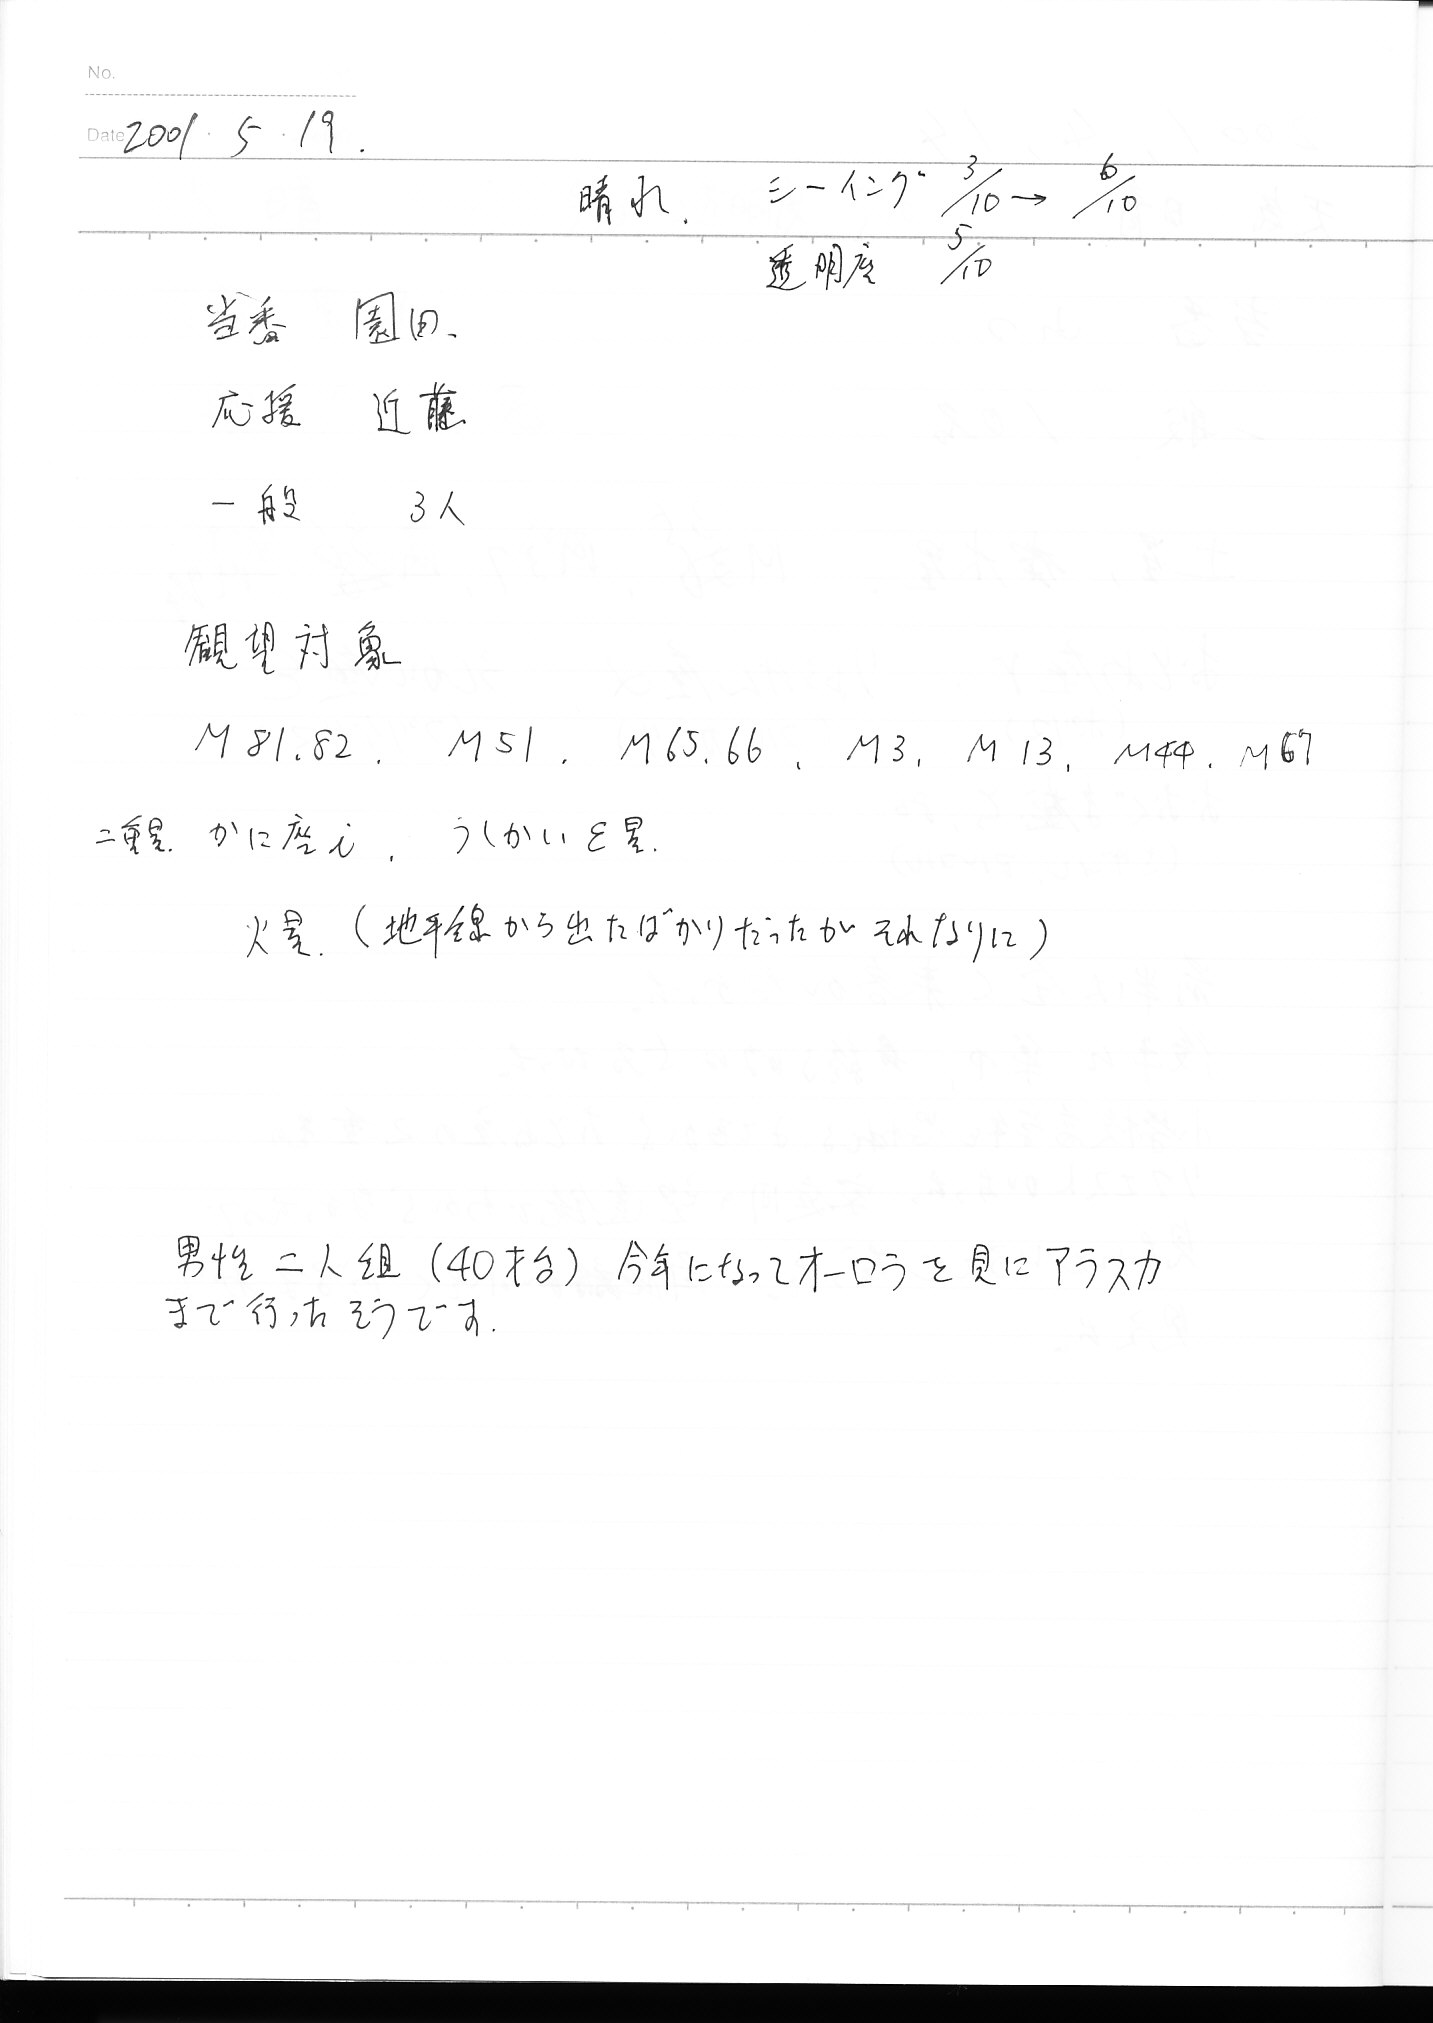 No.
Date 2001・5・19.
晴れ. シーイング 3/10 → 6/10
透明度 5/10
当番 園田、
応援 近藤
一般 3人
観望対象
M81.82. M51. M65.66. M3. M13. M44. M67
二重星. かに座ι. うしかいε星.
火星. (地平線から出たばかりだったが それなりに)
男性二人組(40才台) 今年になってオーロラを見にアラスカ
まで行ったそうです.